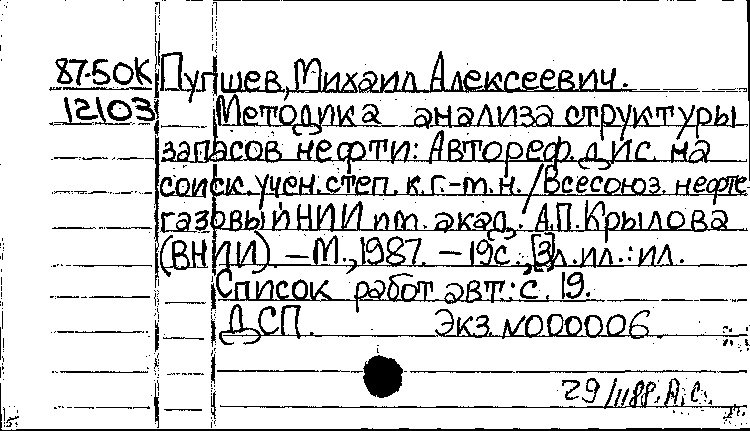 87-50К Пупшев, Михаил Алексеевич.
12103 Методика анализа структуры
запасов нефти: Автореф. дис. на
соиск. учен. степ. к.г.-м.н. / Всесоюз. нефте
газовый НИИ им. акад. А.П. Крылова
(ВНИИ). – М., 1987. – 19с., [3] л. ил. : ил.
Список работ авт.: с. 19.
ДСП. Экз. N000006.
29/II 88. А.С.